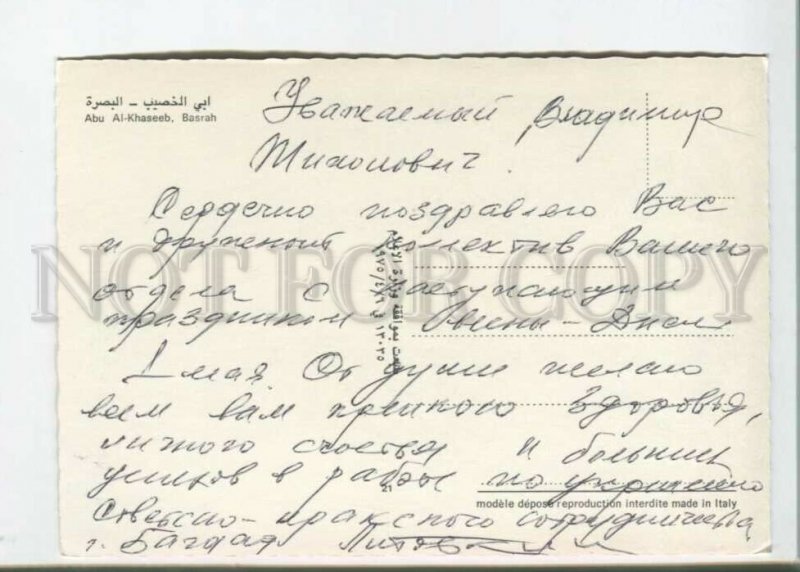 ابي الخصيب - البصرة
Abu Al-Khaseeb, Basrah
Уважаемый Владимир
Тихонович.
Сердечно поздравляю Вас
и дружный коллектив Вашего
отдела с наступающим
праздником Весны - Днем
1 мая. От души желаю
всем вам крепкого здоровья,
личного счастья и больших
успехов в работе по укреплению
21
modèle déposé reproduction interdite made in Italy
Советско-иракского сотрудничества
г. Багдад
NOT FOR COPY